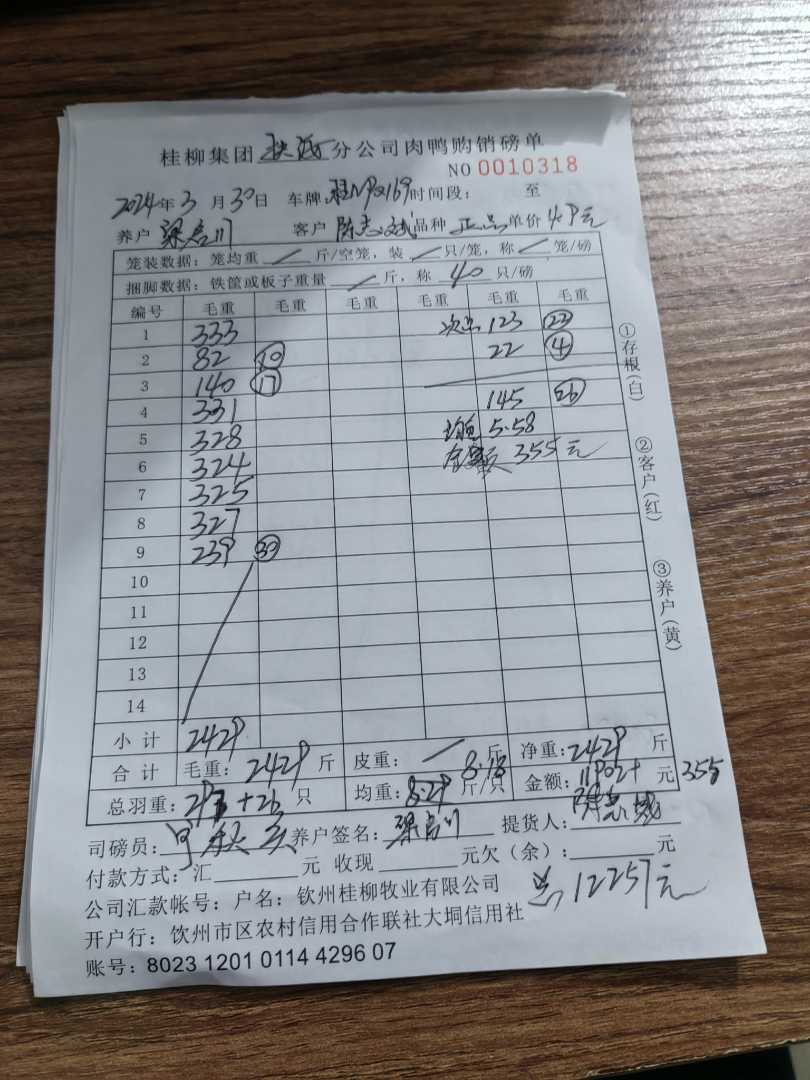 桂柳集团 分公司肉鸭购销磅单
NO 0010318
2024年3月30日 车牌: 时间段: 至
养户 梁启川 客户 陈志斌 品种 正品 单价 4.9元
笼装数据: 笼均重 / 斤/空笼, 装 / 只/笼, 称 / 笼/磅
捆脚数据: 铁筐或板子重量 / 斤, 称 40 只/磅
编号 毛重 毛重 毛重 毛重 毛重 毛重
1 333 次品 123 22
2 82 10 22 4
3 140 17
4 331 145 26
5 328 均重 5.58
6 324 金额 355元
7 325
8 327
9 239 30
10
11
12
13
14
小计 2429
合计 毛重: 2429 斤 皮重: / 斤 净重: 2429 斤
总羽重: + 26 只 均重: 8.29 8.18 斤/只 金额: 11902+ 元 355
司磅员: 养户签名: 梁启川 提货人: 陈志斌
付款方式: 汇 元 收现 元欠(余): 元
公司汇款帐号: 户名: 钦州桂柳牧业有限公司 总12257元
开户行: 钦州市区农村信用合作联社大垌信用社
账号: 8023 1201 0114 4296 07
①存根(白)
②客户(红)
③养户(黄)